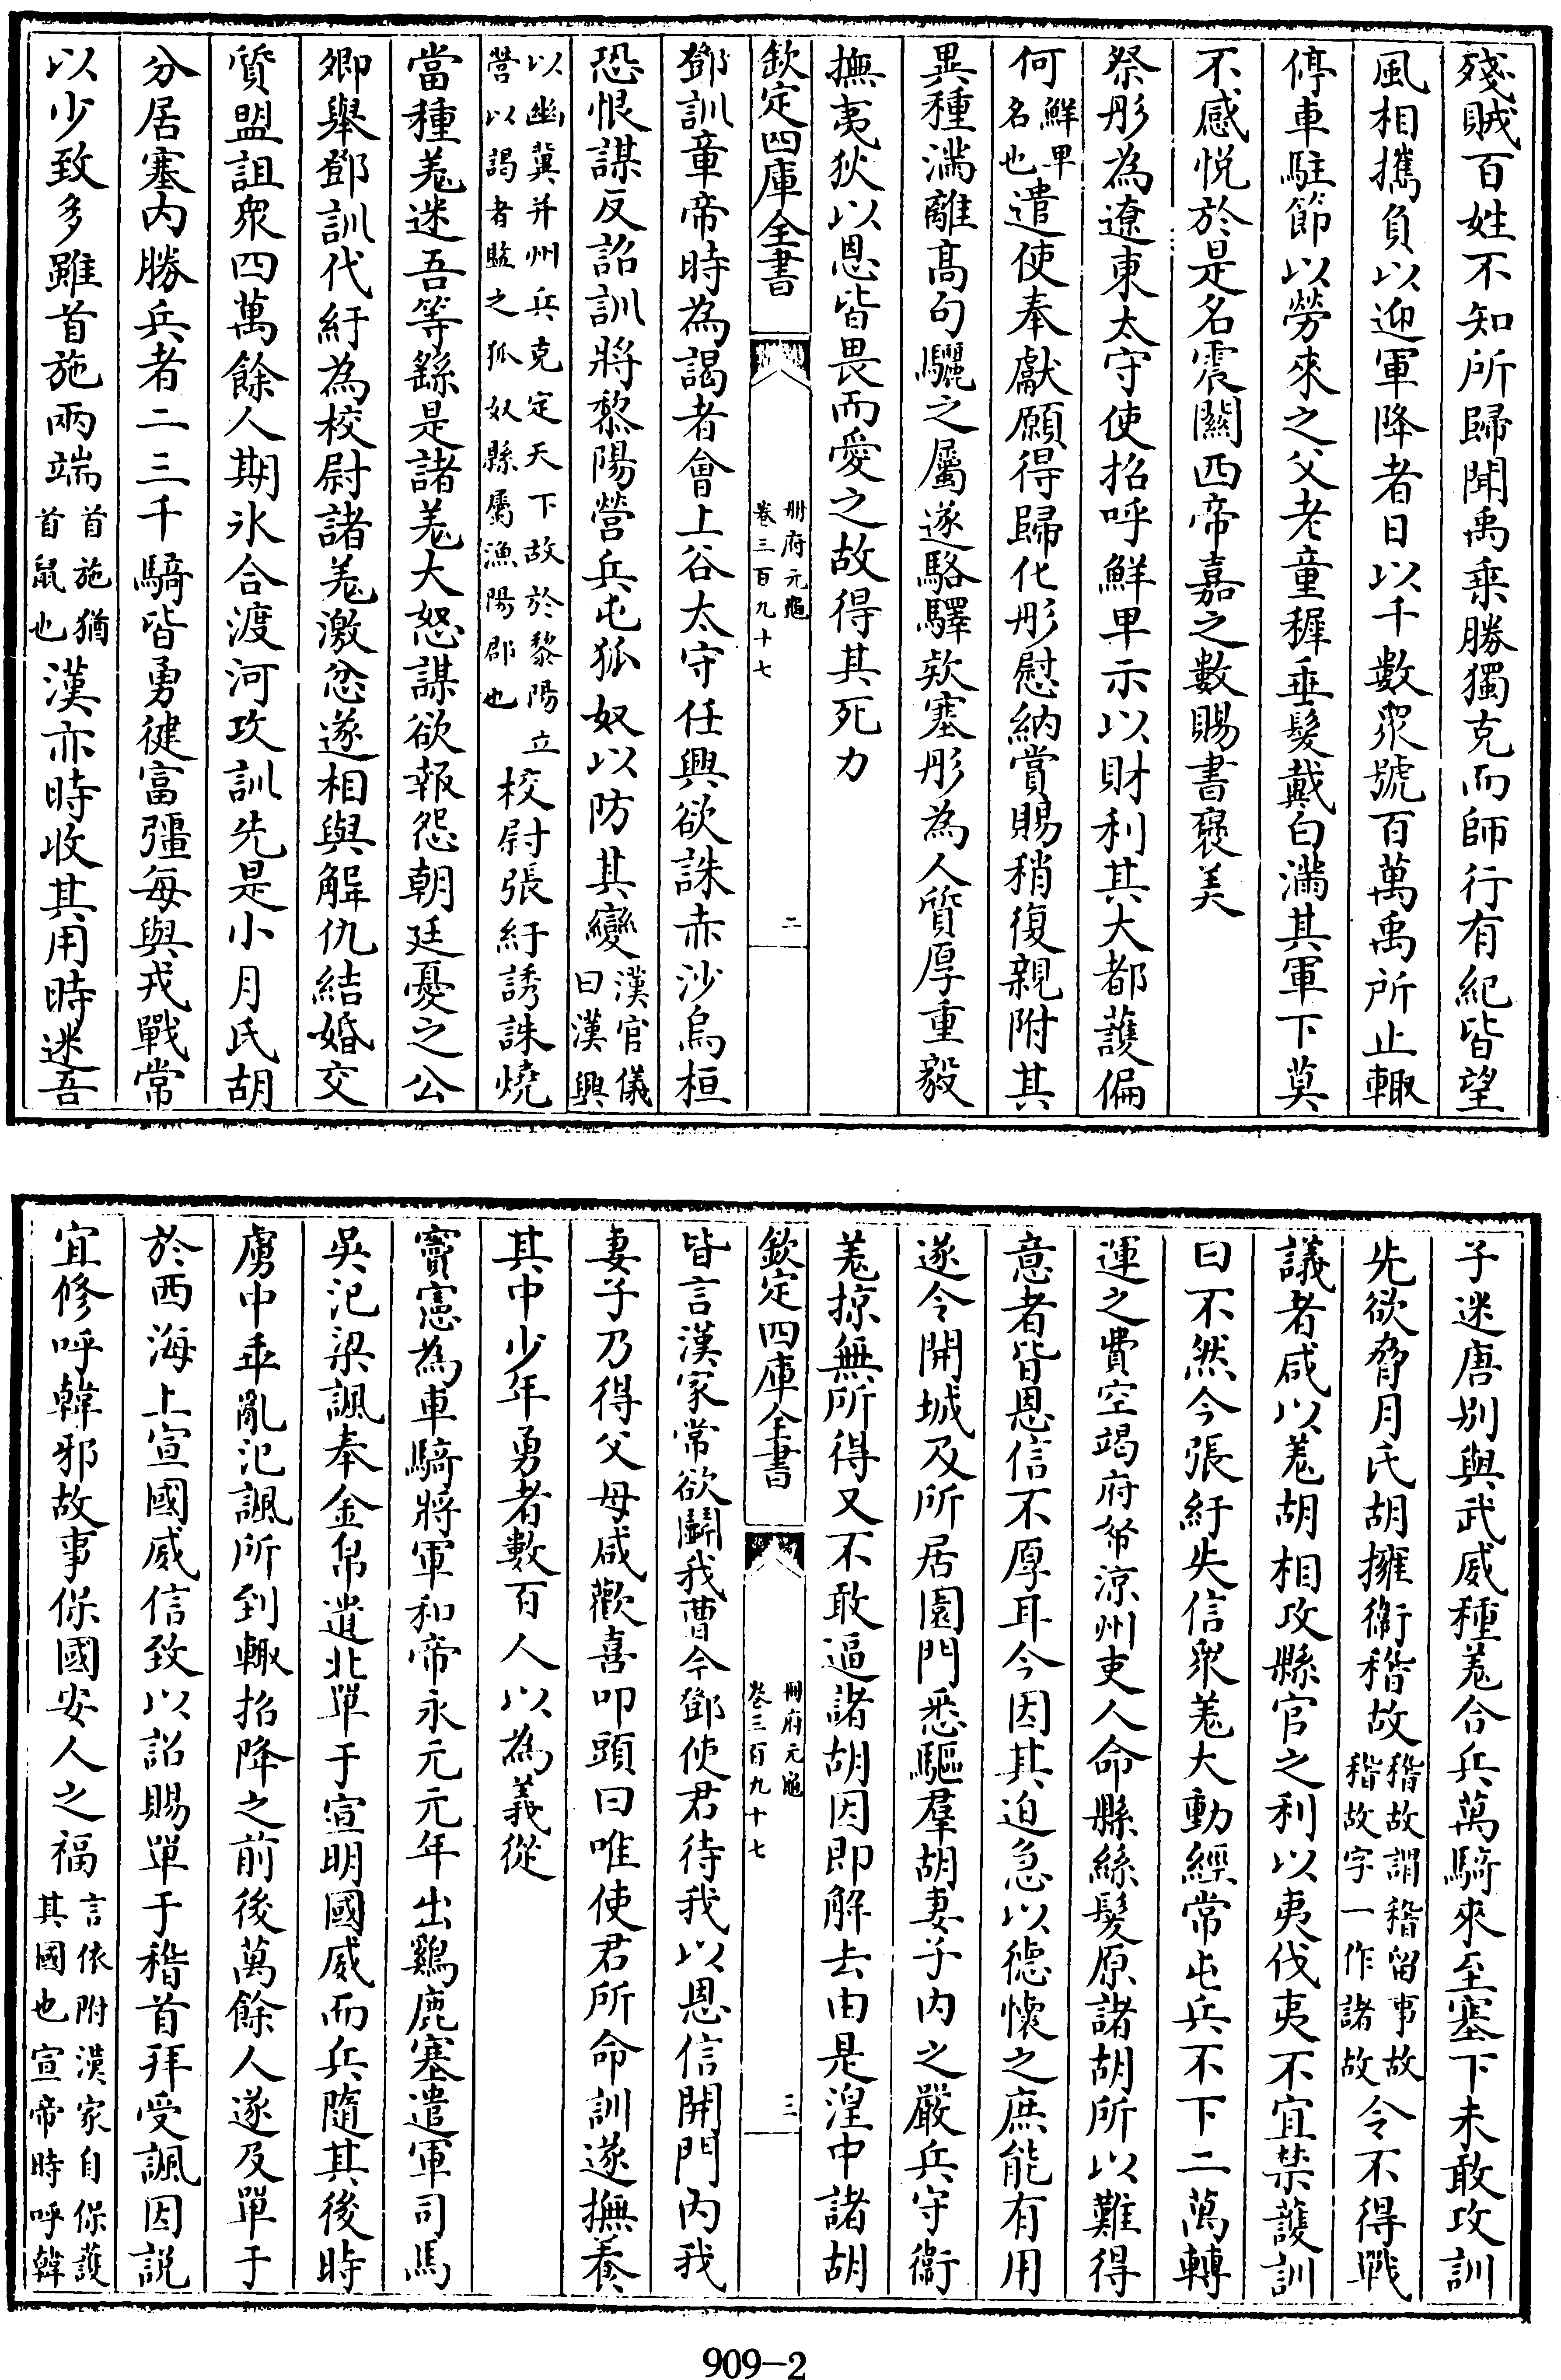 殘賊百姓不知所歸聞禹乗勝獨克而師行有紀皆望
風相攜負以迎軍降者日以千數衆號百萬禹所止輙
停車駐節以勞來之父老童穉垂髮戴白滿其軍下莫
不感悦於是名震闗西帝嘉之數賜書褒美
祭彤為遼東太守使招呼鮮卑示以財利其大都䕶偏
何鮮卑名也遣使奉獻願得歸化彤慰納賞賜稍復親附其
異種滿離髙句驪之屬遂駱驛欵塞彤為人質厚重毅
撫夷狄以恩皆畏而愛之故得其死力
欽定四庫全書 冊府元龜 卷三百九十七 二
鄧訓章帝時為謁者會上谷太守任興欲誅赤沙烏桓
恐恨謀反詔訓將黎陽營兵屯狐奴以防其變漢官儀曰漢興
以幽冀并州兵克定天下故於黎陽立營以謁者監之狐奴縣屬漁陽郡也校尉張紆誘誅燒
當種羌迷吾等繇是諸羌大怒謀欲報怨朝廷憂之公
卿舉鄧訓代紆為校尉諸羌激忿遂相與解仇結婚交
質盟詛衆四萬餘人期氷合渡河攻訓先是小月氏胡
分居塞内勝兵者二三千騎皆勇健富彊每與戎戰常
以少致多雖首施兩端首施猶首鼠也漢亦時收其用時迷吾
子迷唐别與武威種羌合兵萬騎來至塞下未敢攻訓
先欲脅月氏胡擁衛稽故稽故謂稽留事故稽故字一作諸故令不得戰
議者咸以羌胡相攻縣官之利以夷伐夷不宜禁䕶訓
曰不然今張紆失信衆羌大動經常屯兵不下二萬轉
運之費空竭府帑涼州吏人命縣絲髮原諸胡所以難得
意者皆恩信不厚耳今因其迫急以德懷之庶能有用
遂令開城及所居園門悉驅羣胡妻子内之嚴兵守衛
羌掠無所得又不敢逼諸胡因即解去由是湟中諸胡
欽定四庫全書 冊府元龜 卷三百九十七 三
皆言漢家常欲鬭我曹今鄧使君待我以恩信開門内我
妻子乃得父母咸歡喜叩頭曰唯使君所命訓遂撫養
其中少年勇者數百人以為義從
竇憲為車騎將軍和帝永元元年出鷄鹿塞遣軍司馬
吳汜梁諷奉金帛遺北單于宣明國威而兵隨其後時
虜中乖亂汜諷所到輙招降之前後萬餘人遂及單于
於西海上宣國威信致以詔賜單于稽首拜受諷因説
宜修呼韓邪故事保國安人之福言依附漢家自保䕶其國也宣帝時呼韓
909-2